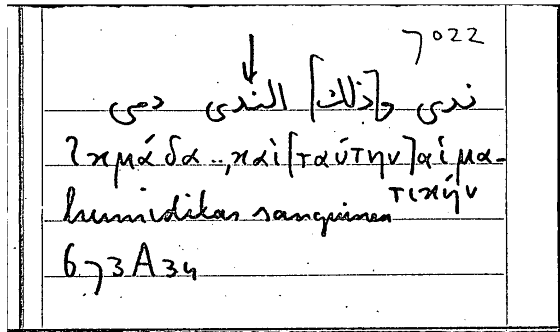 7022
ندى و[ذلك] الندى دمى
ἰκμάδα.., καὶ [ταύτην] αἱμα-
τικήν
humiditas sanguinea
673A34